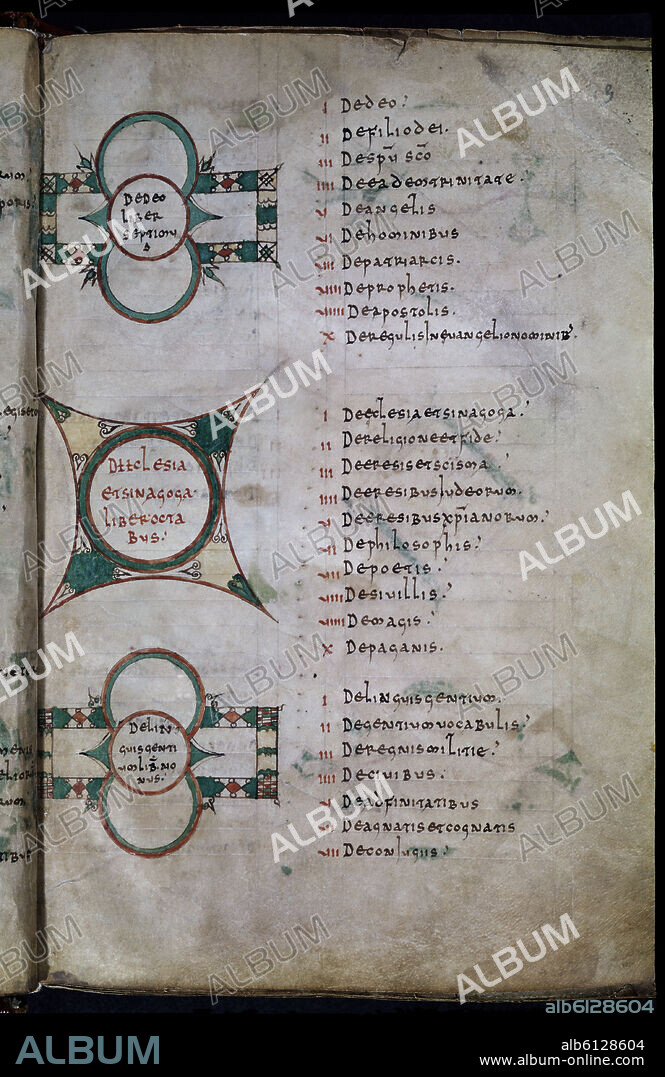 DEDEO
LIBER
SEPTIMUS
I DEDEO.
II DEFILIODEI.
III DESPŪ SC̄O
IIII DEEADEMTRINITATE.
V DEANGELIS
VI DEHOMINIBUS
VII DEPATRIARCIS.
VIII DEPROPHETIS.
VIIII DEAPOSTOLIS.
X DEREGULISINEUANGELIONOMINIB'.
DEECLESIA
ETSINAGOGA
LIBEROCTA
BUS.
I DEECLESIAETSINAGOGA.
II DERELIGIONEETFIDE.
III DEERESISETSCISMA.
IIII DEERESIBUSIUDEORUM.
V DEERESIBUSXP̄IANORUM.
VI DEPHILOSOPHIS.
VII DEPOETIS.
VIII DESIVILLIS.
VIIII DEMAGIS.
X DEPAGANIS.
DELIN
GUISGENTI
UMLIB̄NO
NUS.
I DELINGUISGENTIUM.
II DEGENTIUMVOCABULIS.
III DEREGNISMILITIE.
IIII DECIVIBUS.
V DEADFINITATIBUS
VI DEAGNATISETCOGNATIS
VII DECONIUGIIS.
ALBUM
alb6128604
ALBUM
alb6128604
www.album-online.com